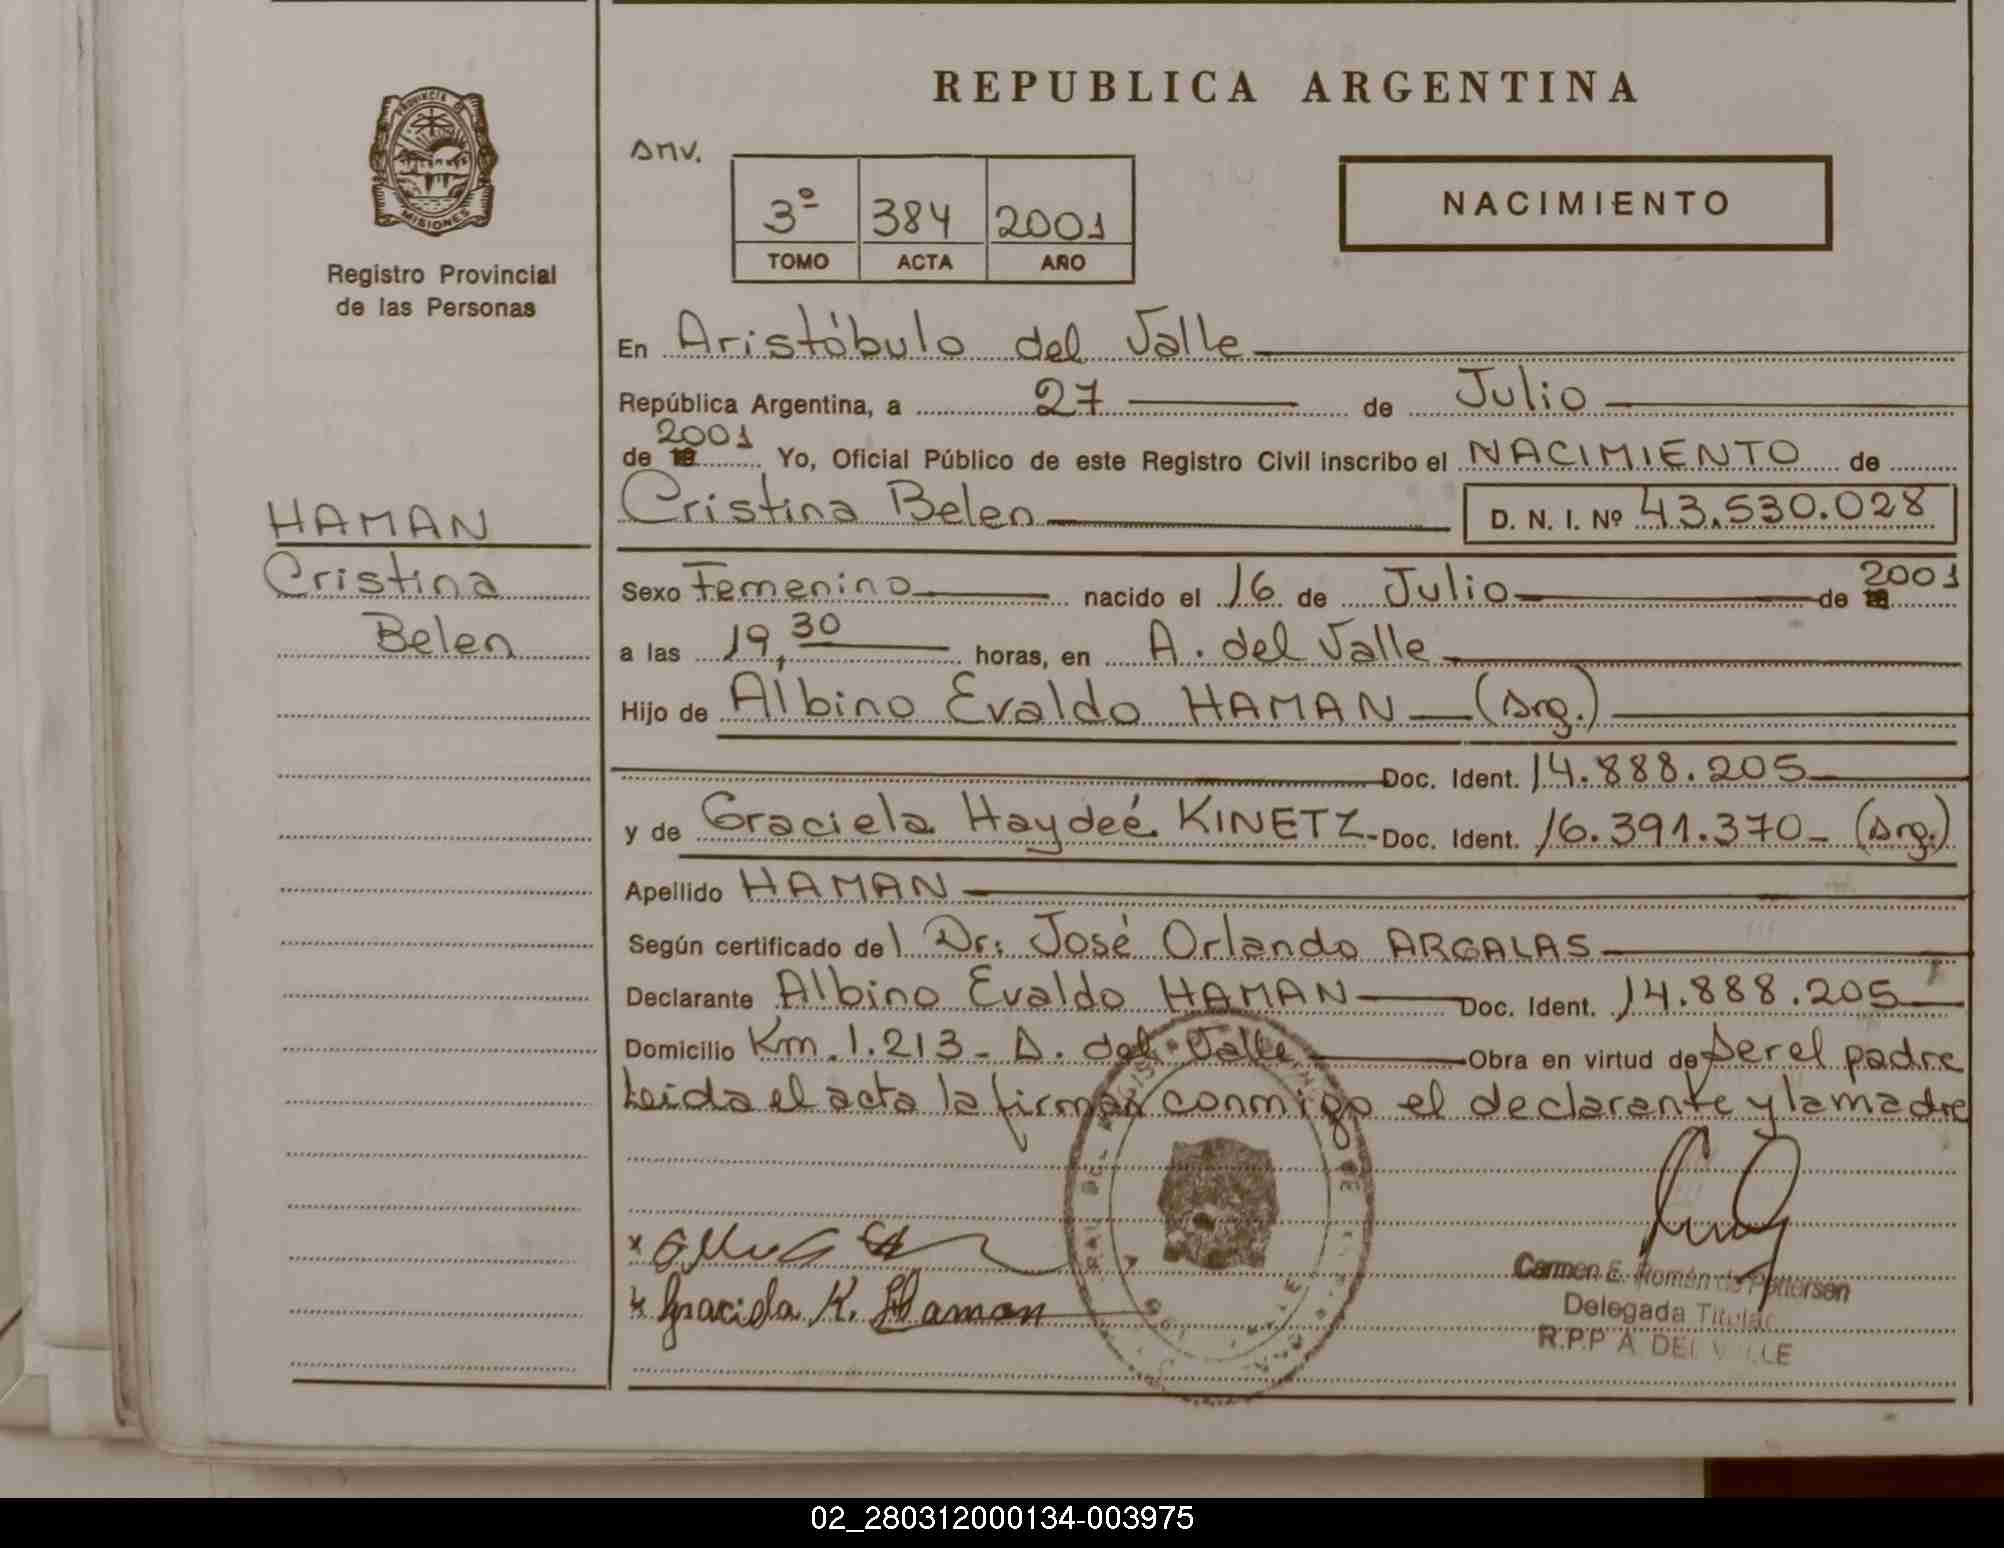 REPUBLICA ARGENTINA
PROVINCIA DE
MISIONES
Registro Provincial
de las Personas
AMV.
3º 384 2001
TOMO ACTA AÑO
NACIMIENTO
En Aristóbulo del Valle
República Argentina, a 27 de Julio
2001
de 19 Yo, Oficial Público de este Registro Civil inscribo el NACIMIENTO de
HAMAN
Cristina
Belen
Cristina Belen D. N. I. Nº 43.530.028
Sexo Femenino nacido el 16 de Julio de 2001
a las 19,30 horas, en A. del Valle
Hijo de Albino Evaldo HAMAN (Arg.)
Doc. Ident. 14.888.205
y de Graciela Haydeé KINETZ - Doc. Ident. 16.391.370 - (Arg.)
Apellido HAMAN
Según certificado del Dr: José Orlando ARGALAS
Declarante Albino Evaldo HAMAN Doc. Ident. 14.888.205
Domicilio Km. 1.213 - A. del Valle Obra en virtud de ser el padre
Leida el acta la firman conmigo el declarante y la madre
x
x Graciela K. Haman
Carmen E. Román de
Delegada Titular
R.P.P A. DEL VALLE
02_280312000134-003975